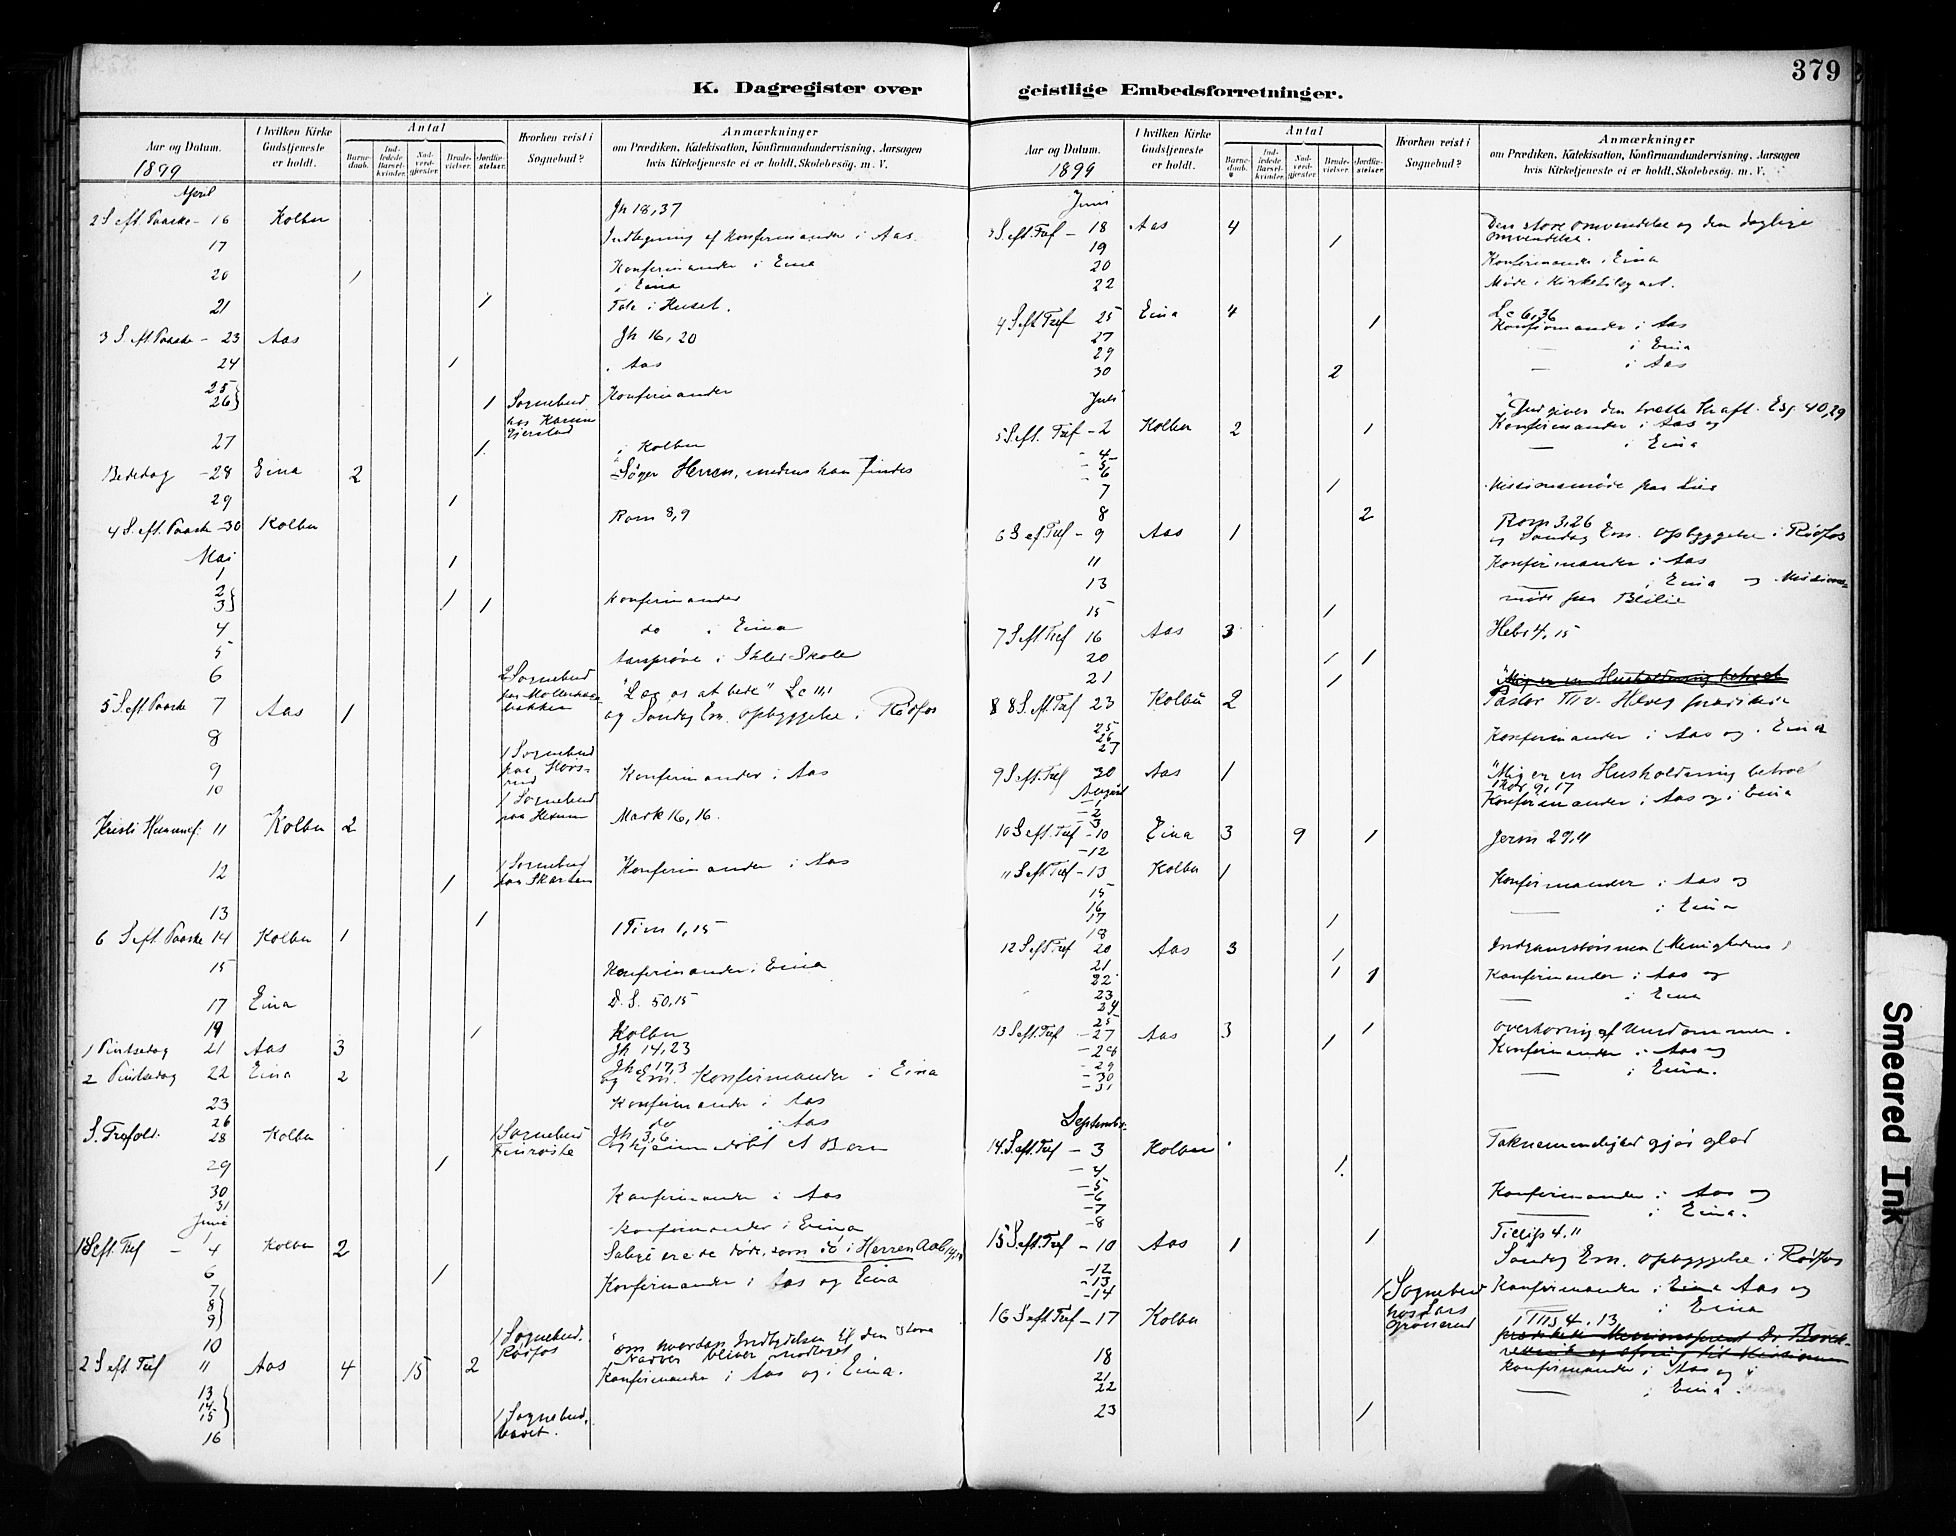 379
K. Dagregister over
geistlige Embedsforretninger.
Aar og Datum.
I hvilken Kirke Gudstjeneste er holdt.
Antal
Barnedaab.
Indledede Barselkvinder.
Nadverdgjester.
Brudevielser.
Jordfæstelser.
Hvorhen reist i Sognebud?
Anmærkninger
om Prædiken, Katekisation, Konfirmandundervisning, Aarsagen
hvis Kirketjeneste ei er holdt, Skolebesøg. m. V.
1899
April
2 S. eft. Paaske - 16 Kolbu Jh 18,37
17 Indtegning af Konfirmander i Aas.
20 1 Konfirmander i Eina
i Eina
21 1 Tale i Huset.
3 S. eft. Paaske - 23 Aas Jh 16, 20
24 1 Aas
25 26 } 1 Sognebud hos Karen Konfirmander
27 1 i Kolbu
Bededag - 28 Eina 2 Søger Herren, medens han findes
29 1
4 S. eft. Paaske - 30 Kolbu Rom 8,9
Mai
1 1
2 3 } 1 1 Konfirmander
4 do i Eina
5 Aarsprøve i Skole
6 2 Sognebud "Lær os at bede" Lc 11,1
5 S. eft. Paaske 7 Aas 1 og Søndag Em. opbyggelse i Rødfos
8
9 1 Sognebud paa Konfirmander i Aas
10 1 Sognebud paa
Kristi Himmelf. 11 Kolbu 2 Mark 16, 16.
12 1 1 Sognebud paa Skarten Konfirmander i Aas
13 1
6 S. eft. Paaske 14 Kolbu 1 1 Tim 1,15
15 Konfirmander i Eina
17 Eina D. S. 50,15
19 1 Kolbu
1 Pintsedag 21 Aas 3 Jh 14,23
2 Pintsedag 22 Eina 2 Jh 17,3
og Em. Konfirmander i Eina
23 Konfirmander i Aas
26 do i Aas
S. Trefold. 28 Kolbu 1 Sognebud Jh. 3,6.
og hjemmedøbt et Barn
29 1
30 Konfirmander i Aas
31
Juni
1 Konfirmander i Eina
1 S. eft. Tref - 4 Kolbu 2 Salige ere de døde, som dø i Herren
6 1
7 8 9 } Konfirmander i Aas og Eina
10 1 Sognebud. Rødfos "om hvordan Indbydelsen til den store
Nadver bliver modtaget
2 S. eft. Tref 11 Aas 4 15 2 Konfirmander i Aas og i Eina.
13 14 15 }
16 1 Sognebud,
Aar og Datum.
I hvilken Kirke Gudstjeneste er holdt.
Antal
Barnedaab.
Indledede Barselkvinder.
Nadverdgjester.
Brudevielser.
Jordfæstelser.
Hvorhen reist i Sognebud?
Anmærkninger
om Prædiken, Katekisation, Konfirmandundervisning, Aarsagen
hvis Kirketjeneste ei er holdt, Skolebesøg. m. V.
1899
Juni
3 S. eft. Tref - 18 Aas 4 Den store omvendelse og den daglige
omvendelse.
19 1
20 Konfirmander i Eina
22 Møde i Kirketilsynet.
4 S. eft. Tref 25 Eina 4 1 Lc 6,36
27 Konfirmander i Aas
29 — i Eina
30 2 — i Aas
Juli
5 S. eft. Tref - 2 Kolbu 2 1 "Gud giver den trætte Kraft. Esj. 40,29
- 4 Konfirmander i Aas og
- 5 — i Eina
- 6
7 1 Missionsmøde paa Lier
8 2
6 S. ef. Tref - 9 Aas 1 Rom 3,26
og Søndag Em. opbyggelse i Rødfos
11 Konfirmander i Aas
13 — i Eina og Missions-
møde paa
15 1
7 S. eft. Tref 16 Aas 3 Hebr 4, 15
20 1 1
21 1 "Mig er en Husholdning betroet
8 S. eft. Tref 23 Kolbu 2 Pastor
25 26 27 Konfirmander i Aas og i Eina
9 S. eft. Tref 30 Aas 1 "Mig er en Husholdning betroet
1 Kor 9, 17
August
- 1 Konfirmander i Aas og i Eina
- 2
- 3
10 S. eft. Tref - 10 Eina 3 9 1 Jerm 29,11
- 12
11 S. eft. Tref - 13 Kolbu 1
15 Konfirmander i Aas og
16 — i Eina
17 1
18
12 S. eft. Tref 20 Aas 3 1
21 1 1 Konfirmander i Aas og
22 — i Eina
23
24
25
13 S. eft. Tref - 27 Aas 3 1 1 overhøring af Ungdommen.
- 28 Konfirmander i Aas og
- 29 — i Eina.
- 30
- 31
September
14 S. eft. Tref - 3 Kolbu Taknemmelighed gjør glad
- 4 1
- 5
- 6 Konfirmander i Aas og
- 7 — i Eina.
- 8
15 S. eft. Tref - 10 Aas 1 1 Fillip 4.11
Søndag Em. opbyggelse i Rødfos
- 12
- 13 1 Sognebud hos Lars Konfirmander i Eina Aas og
- 14 — i Eina
16 S. eft. Tref - 17 Kolbu 4. 13
18
21 Konfirmander i Aas og
22 — i Eina.
23 1
Smeared Ink